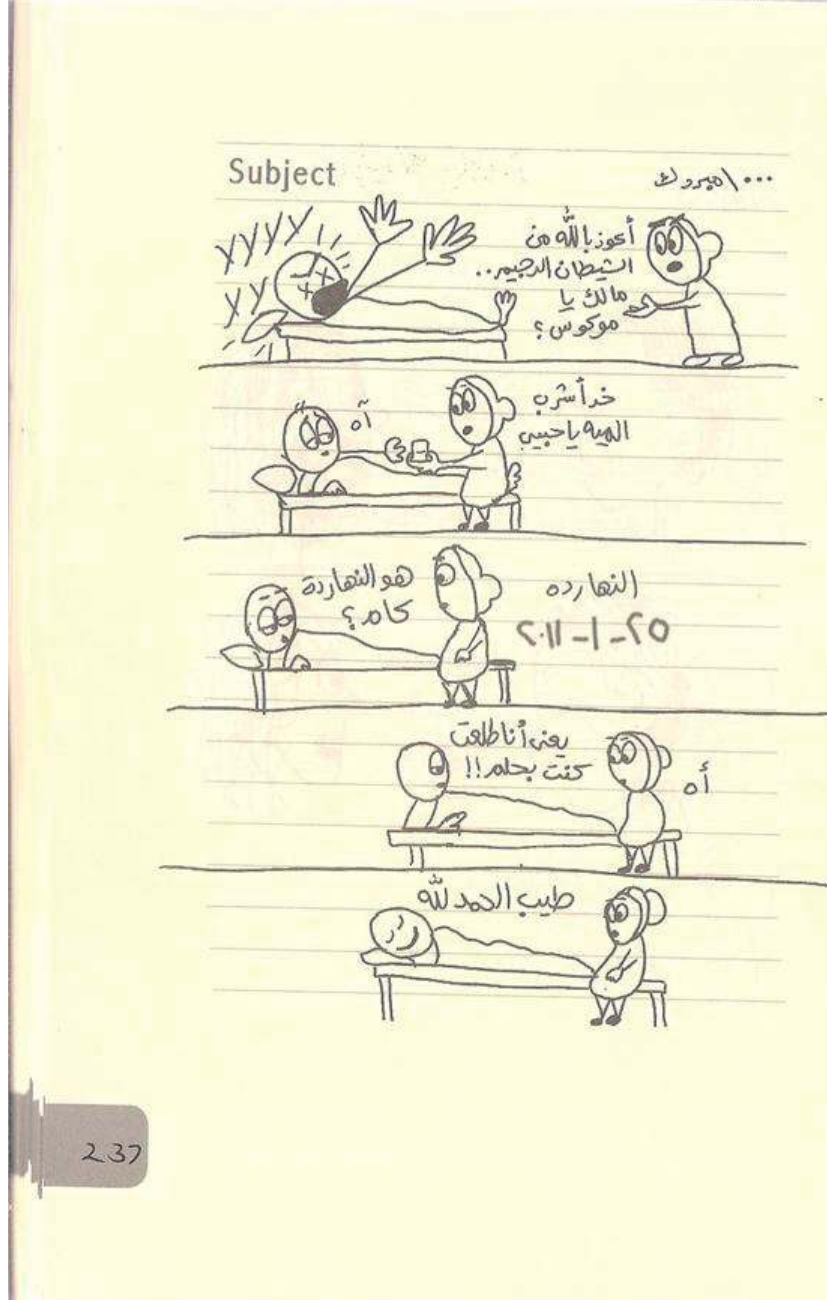 Subject
١٠٠٠ مبروك
أعوذ بالله من
الشيطان الرجيم..
مالك يا
موكوس؟
لالالالا
لالا
خد أشرب
الميه يا حبيبي
آه
هو النهاردة
كام؟
النهارده
٢٥-١-٢٠١١
يعنى أنا طلعت
كنت بحلم!!
أه
طيب الحمد لله
237